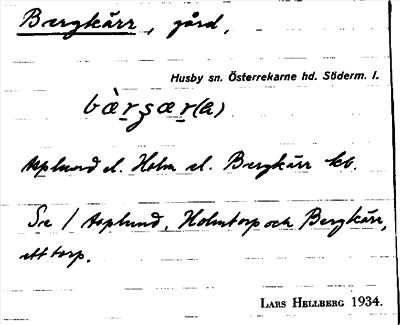 Bergkärr, gård,
Husby sn. Österrekarne hd. Söderm. l.
Asplund el. Holm el. Bergkärr kb.
Se / Asplund, Holmtorp och Bergkärr,
ett torp.
LARS HELLBERG 1934.